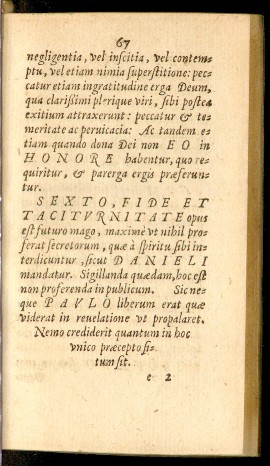 67
negligentia, vel inscitia, vel contem-
ptu, vel etiam nimia superstitione: pec-
catur etiam ingratitudine erga Deum,
qua clarißimi plerique viri, sibi postea
exitium attraxerunt: peccatur & te-
meritate ac peruicacia: Ac tandem e-
tiam quando dona Dei non EO in
HONORE habentur, quo re-
quiritur, & parerga ergis præferun-
tur.
SEXTO, FIDE ET
TACITVRNITATE opus
est futuro mago, maximè vt nihil pro-
ferat secretorum, quæ à spiritu sibi in-
terdicuntur, sicut DANIELI
mandatur. Sigillanda quædam, hoc est
non proferenda in publicum. Sic ne-
que PAVLO liberum erat quæ
viderat in reuelatione vt propalaret.
Nemo crediderit quantum in hoc
vnico præcepto si-
tum sit.
e 2